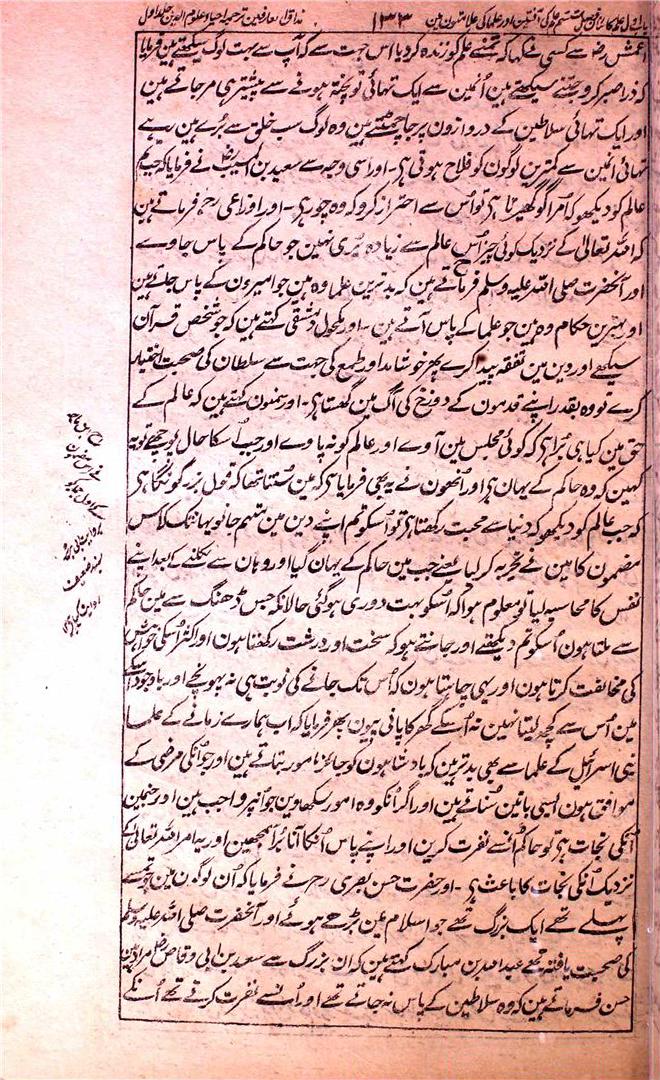 باب اول علم کا بیان فصل ششم علم کی آفتین اور علما کی علامتون مین ۱۳۳ مذاق العارفین ترجمہ احیاء علوم الدین جلد اول
اعمش رضہ سے کسی نے کہا کہ تمنے علم کو زندہ کر دیا اس جہت سے کہ آپ سے بہت لوگ سیکھتے ہین فرمایا
کہ ذرا صبر کرو جتنے سیکھتے ہین اُنمین سے ایک تہائی تو پختہ ہونے سے پیشتر ہی مر جاتے ہین
اور ایک تہائی سلاطین کے دروازون پر جا چمٹتے ہین وہ لوگ سب خلق سے بُرے ہین رہے
تہائی اُنمین سے کمترین لوگون کو فلاح ہوتی ہی۔ اور اسی وجہ سے سعید بن المسیب رح نے فرمایا کہ جب تم
عالم کو دیکھو کہ اُمرا کو گھیرتا ہی تو اُس سے احتراز کرو کہ وہ چور ہی۔ اور اوزاعی رح فرماتے ہین
کہ اللہ تعالیٰ کے نزدیک کوئی چیز اُس عالم سے زیادہ بُری نہین جو حاکم کے پاس جاوے
اور آنحضرت صلی اللہ علیہ وسلم فرماتے ہین کہ بدترین علما وہ ہین جو امیرون کے پاس جاتے ہین
اور بہترین حکام وہ ہین جو علما کے پاس آتے ہین۔ اور مکحول دمشقی کہتے ہین کہ جو شخص قرآن
سیکھے اور دین مین تفقہ پیدا کرے پھر خوشامد اور طمع کی جہت سے سلطان کی صحبت اختیار
کرے تو وہ بقدر اپنے قدمون کے دوزخ کی آگ مین گھستا ہی۔ اور سمنون کہتے ہین کہ عالم کے
حق مین کیا ہی بُرا ہی کہ کوئی مجلس مین آوے اور عالم کو نہ پاوے اور جب اُسکا حال پوچھے تو یہ
کہین کہ وہ حاکم کے یہان ہی اور اُنھون نے یہ بھی فرمایا ہی کہ مین سُنتا تھا کہ قول بزرگونکا ہی
کہ جب عالم کو دیکھو کہ دنیا سے محبت رکھتا ہی تو اُسکو تم اپنے دین مین متہم جانو یہانتک کہ اس
مضمون کا مین نے تجربہ کر لیا یعنے جب مین حاکم کے یہان گیا اور وہان سے نکلنے کے بعد اپنے
نفس کا محاسبہ لیا تو معلوم ہوا کہ اُسکو بہت دوری ہو گئی حالانکہ جس ڈھنگ سے مین حاکم
سے ملتا ہون اُسکو تم دیکھتے اور جانتے ہو کہ سخت اور درشت رکھتا ہون اور اکثر اُسکی خواہش
کی مخالفت کرتا ہون اور یہی چاہتا ہون کہ اُس تک جانے کی نوبت ہی نہ پہونچے اور باوجود اسکے
مین اُس سے کچھ لیتا نہین نہ اُسکے گھر کا پانی پیون پھر فرمایا کہ اب ہمارے زمانے کے علما
بنی اسرائیل کے علما سے بھی بدتر ہین کہ بادشاہون کو جائز امور بتاتے ہین اور جو اُنکی مرضی کے
موافق ہون ایسی باتین سُناتے ہین اور اگر اُنکو وہ امور سکھاوین جو اُنپر واجب ہین اور جنمین
اُنکی نجات ہی تو حاکم اُنسے نفرت کرین اور اپنے پاس اُنکا آنا بُرا سمجھین اور یہ امر اللہ تعالیٰ کے
نزدیک اُنکی نجات کا باعث ہو۔ اور حضرت حسن بصری رح نے فرمایا کہ اُن لوگون مین جو تمسے
پہلے تھے ایک بزرگ تھے جو اسلام مین بڑھے ہوئے اور آنحضرت صلی اللہ علیہ وسلم
کی صحبت یافتہ تھے عبد اللہ بن مبارک کہتے ہین کہ ان بزرگ سے سعد بن ابی وقاص رض مراد ہین
حسن فرماتے ہین کہ وہ سلاطین کے پاس نہ جاتے تھے اور اُنسے نفرت کرتے تھے اُنکے